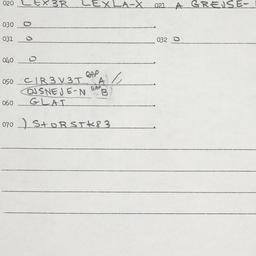 020 LEX3R LEXLA-X 021 A GREJSE-
030 0
031 0 032 0
040 0
050 CIR3V3T GAP A //
OJSNEJE-N GAP B
060 GLAT
070 ) StORSTK83